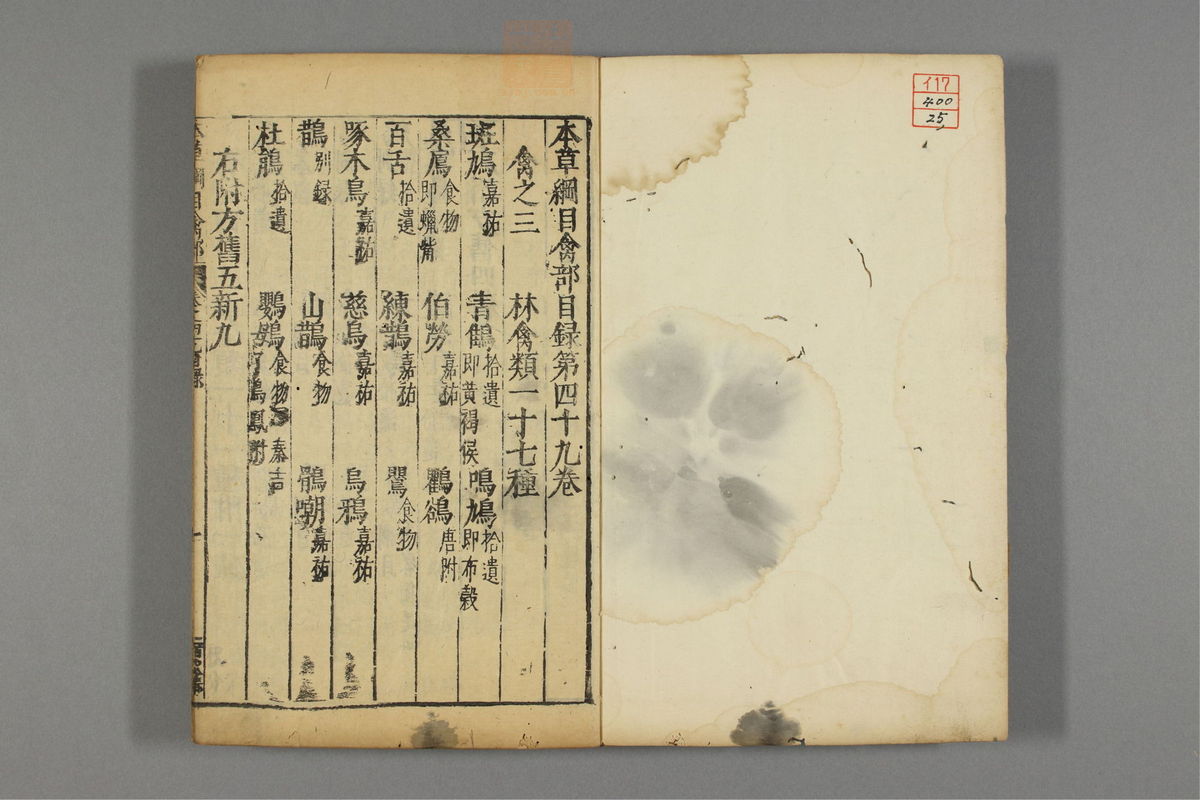 117
400
25
本草綱目禽部目録第四十九卷
禽之三　林禽類一十七種
斑鳩嘉祐　青鶴拾遺即黄褐侯　鳲鳩拾遺即布穀
桑鳸食物即蠟觜　伯勞嘉祐　鸜鵒唐附
百舌拾遺　練鵲嘉祐　鸎食物
啄木鳥嘉祐　慈烏嘉祐　烏鴉嘉祐
鵲別録　山鵲食物　鶻嘲嘉祐
杜鵑拾遺　鸚䳇食物　秦吉　鳥鳳附
右附方舊五新九